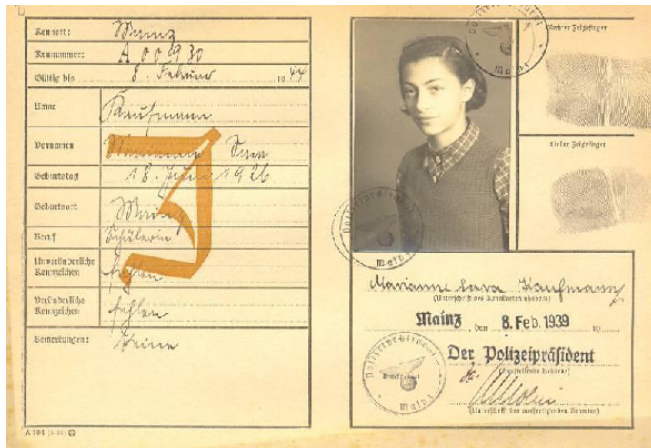 Kennort: Mainz
Kennummer: A 00930
Gültig bis 8. Februar 1944
Name Kaufmann
Vornamen Marianne Sara
Geburtstag 18. Juni 1926
Geburtsort Mainz
Beruf Schülerin
Unveränderliche Kennzeichen fehlen
Veränderliche Kennzeichen fehlen
Bemerkungen: Keine
J
A 104
Rechter Zeigefinger
Linker Zeigefinger
Marianne Sara Kaufmann
(Unterschrift des Kennkarteninhabers)
Mainz, den 8. Feb. 1939 19
Der Polizeipräsident
(Ausstellende Behörde)
(Unterschrift des ausfertigenden Beamten)
Polizeipräsident
Mainz